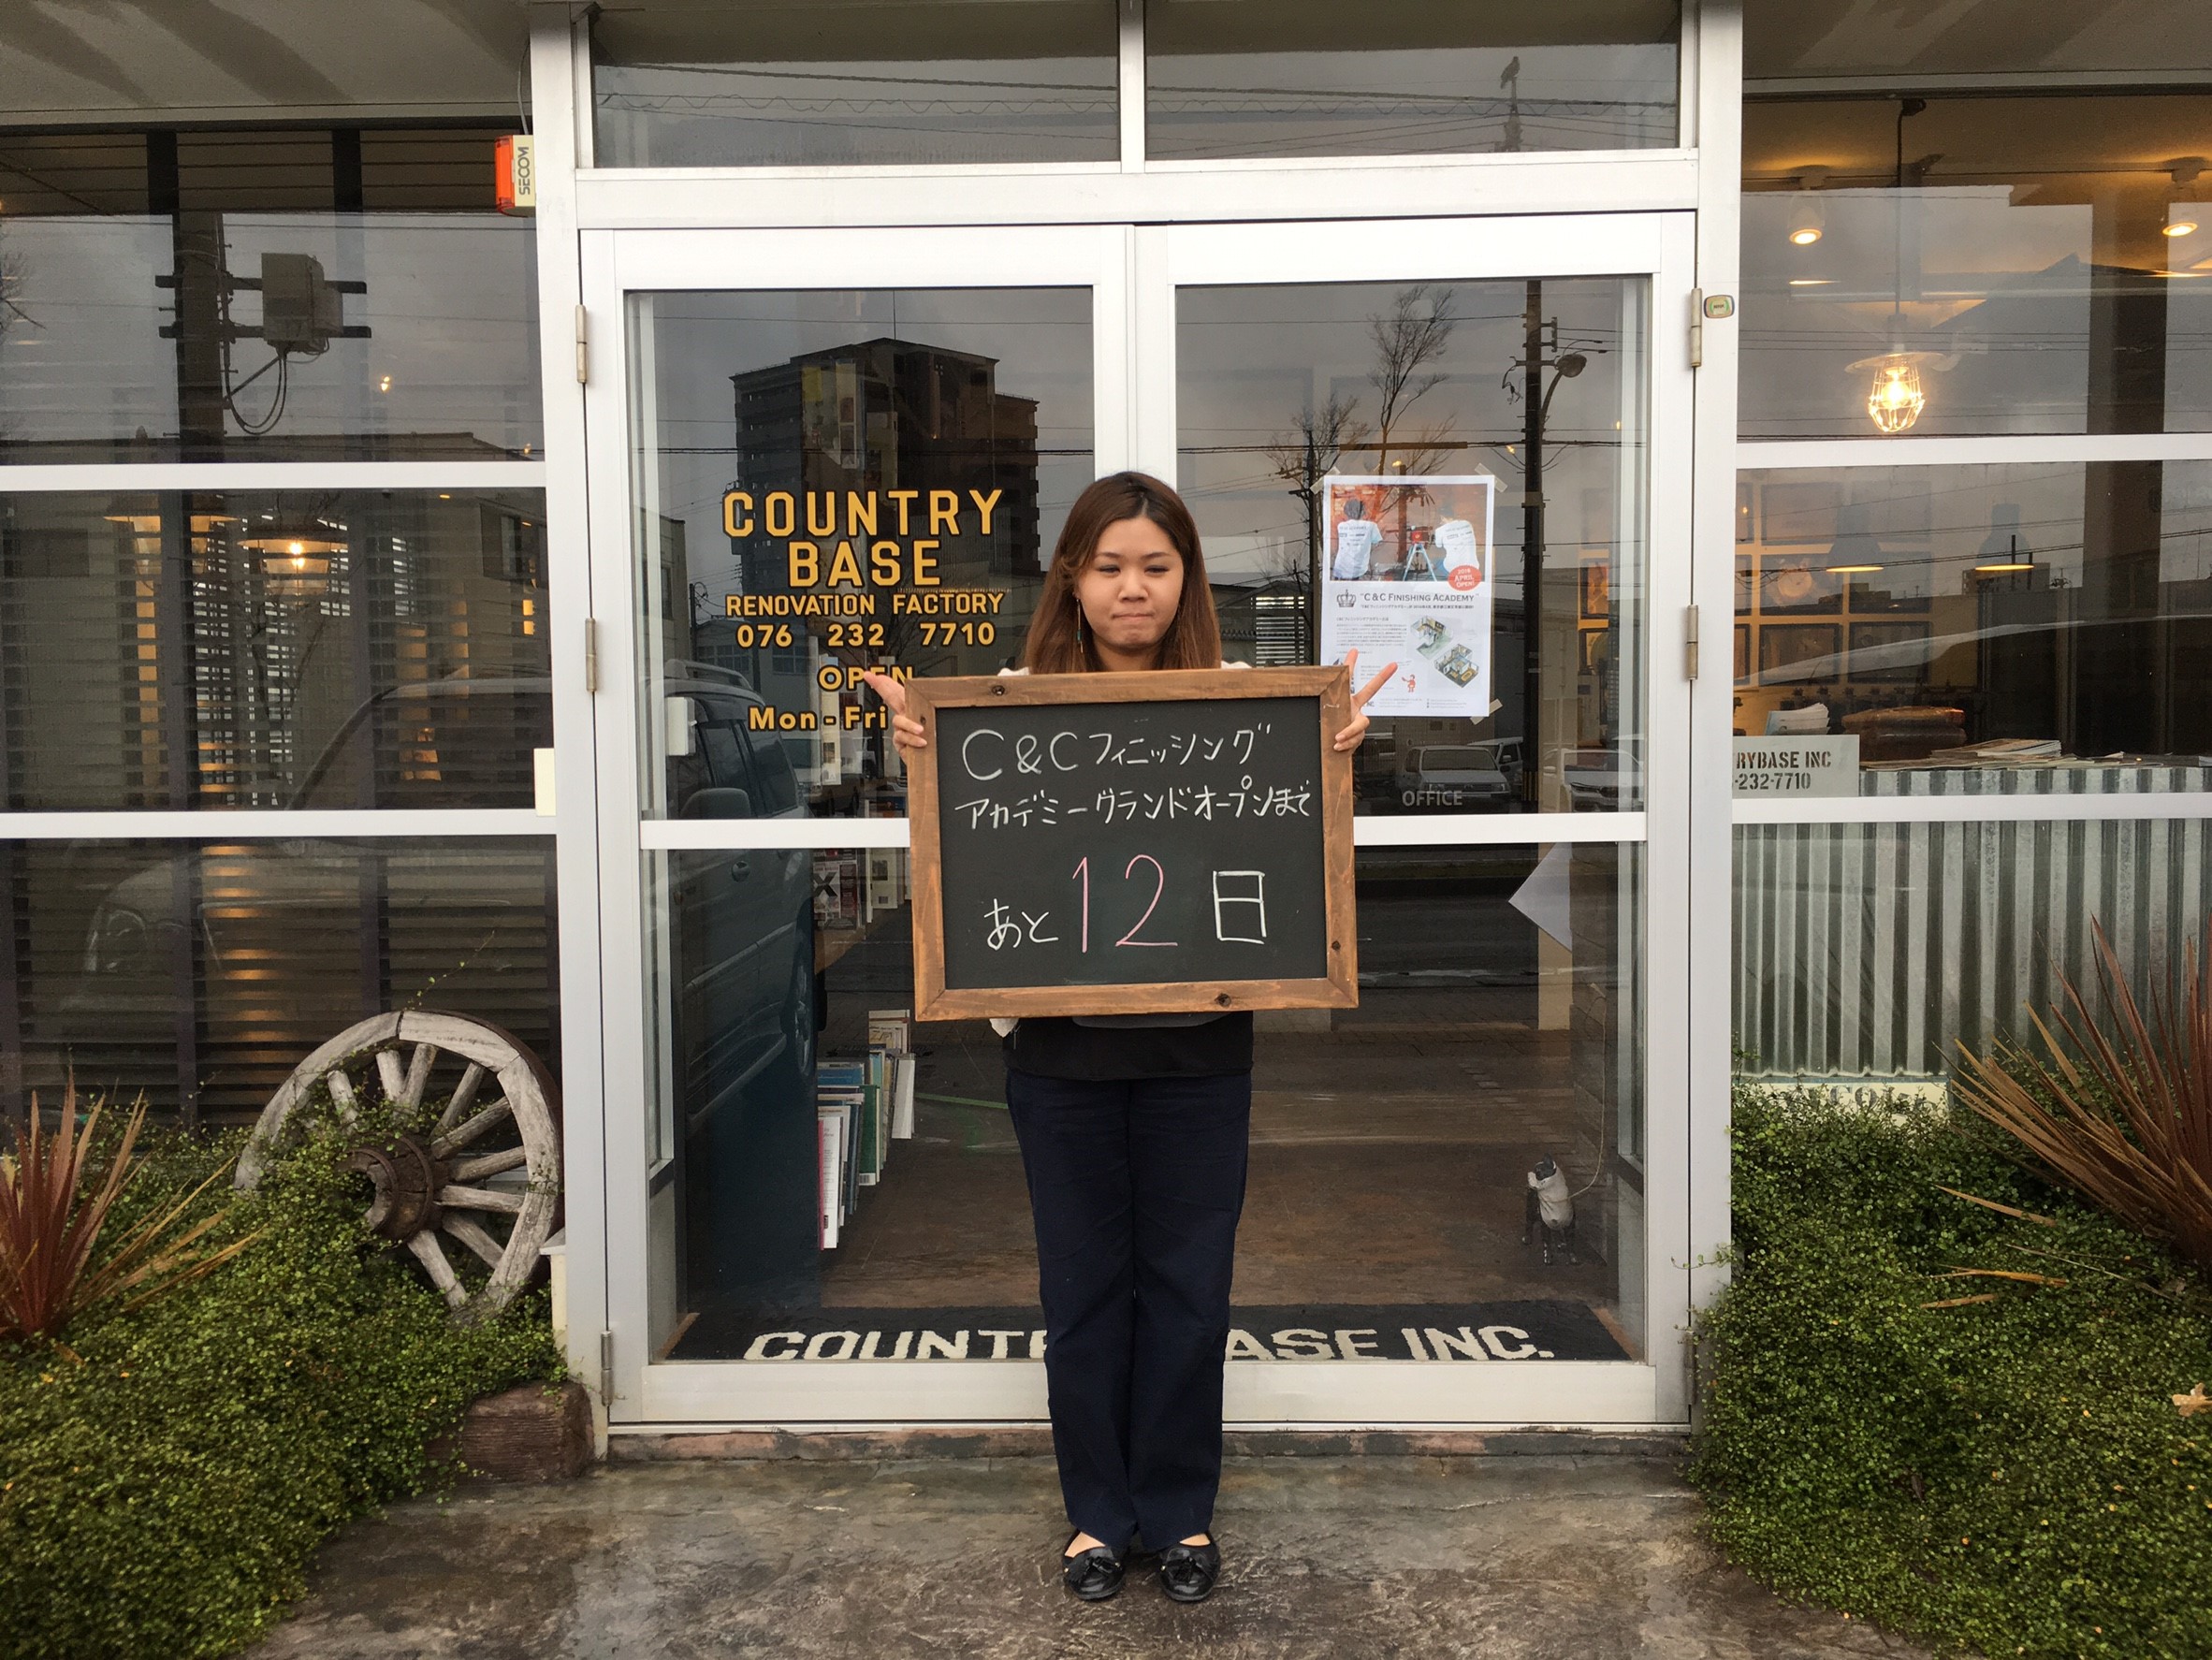 SECOM
COUNTRY
BASE
RENOVATION FACTORY
076 232 7710
OPEN
Mon-Fri
2016
APRIL
OPEN!
"C&C FINISHING ACADEMY"
C&Cフィニッシング
アカデミーグランドオープンまで
あと12日
OFFICE
RYBASE INC
-232-7710
COUNT ASE INC.